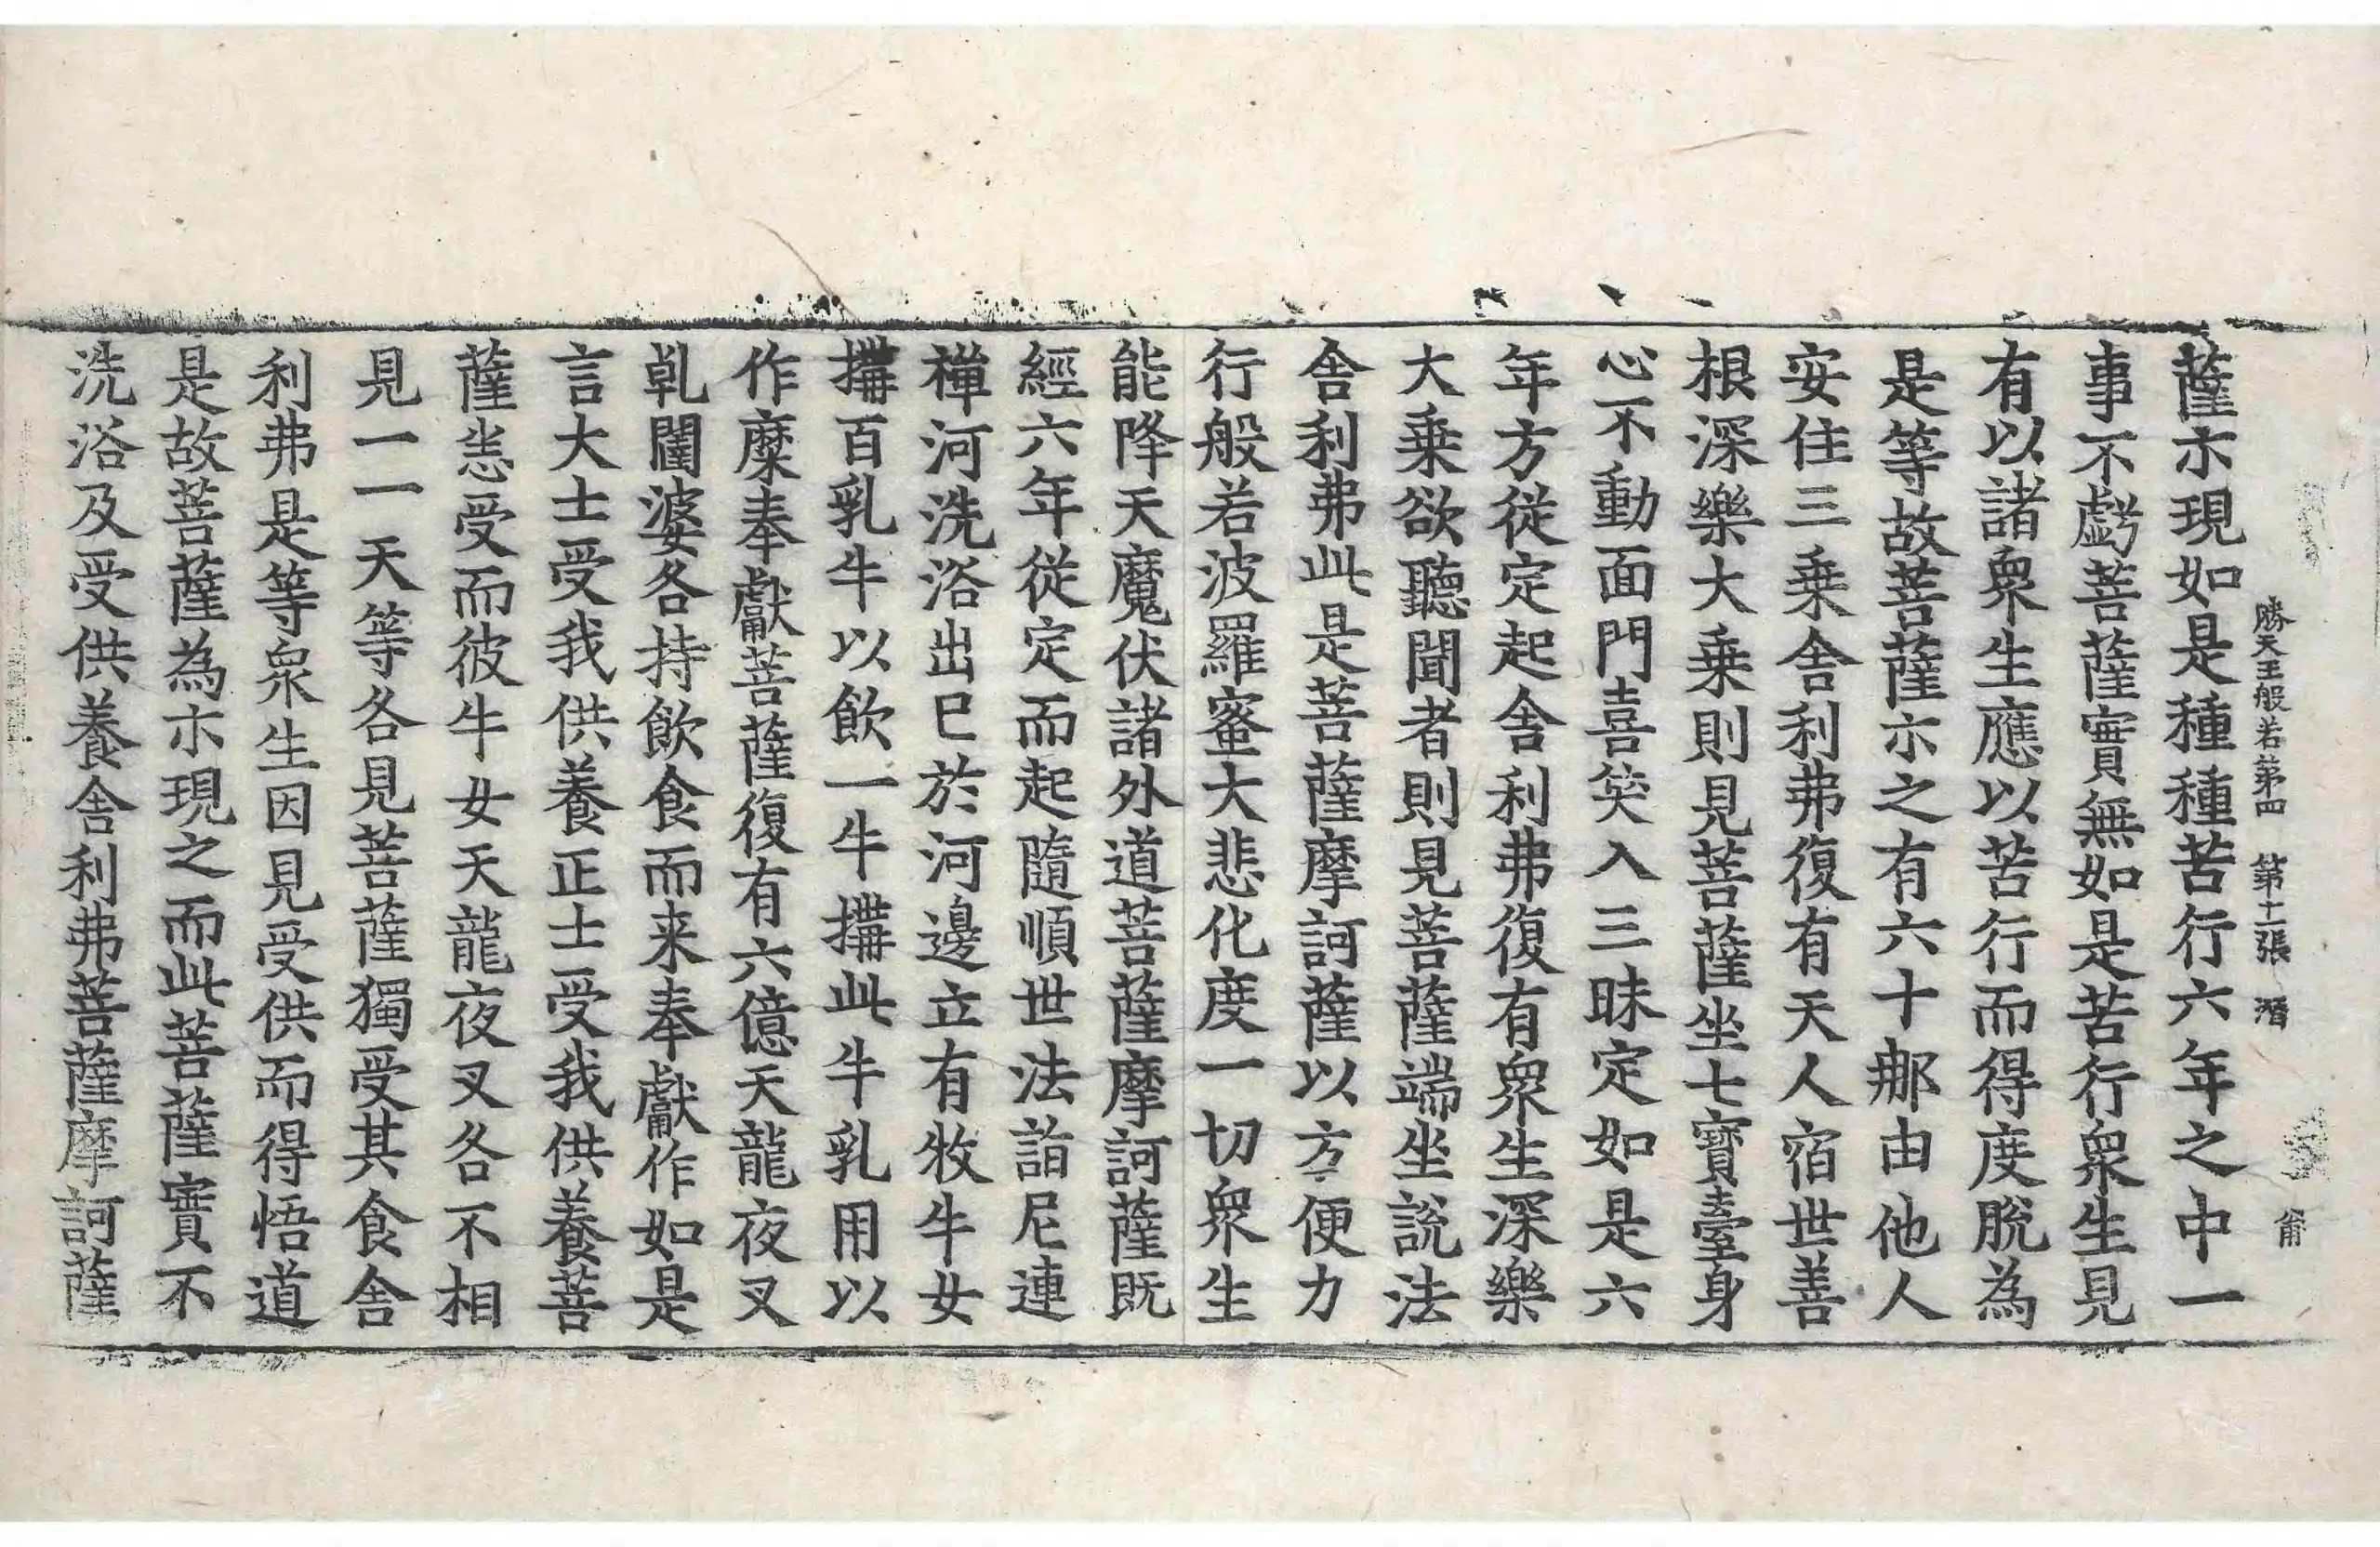 勝天王般若第四　第十二張　潛
甯
薩示現如是種種苦行六年之中一
事不虧菩薩實無如是苦行衆生見
有以諸衆生應以苦行而得度脫為
是等故菩薩示之有六十那由他人
安住三乗舍利弗復有天人宿世善
根深樂大乗則見菩薩坐七寶臺身
心不動面門喜笑入三昧定如是六
年方從定起舍利弗復有衆生深樂
大乗欲聽聞者則見菩薩端坐說法
舍利弗此是菩薩摩訶薩以方便力
行般若波羅蜜大悲化度一切衆生
能降天魔伏諸外道菩薩摩訶薩既
經六年從定而起隨順世法詣尼連
禪河洗浴出已於河邊立有牧牛女
搆百乳牛以飲一牛搆此牛乳用以
作糜奉獻菩薩復有六億天龍夜叉
乹闥婆各持飲食而来奉獻作如是
言大士受我供養正士受我供養菩
薩悉受而彼牛女天龍夜叉各不相
見一一天等各見菩薩獨受其食舍
利弗是等衆生因見受供而得悟道
是故菩薩為示現之而此菩薩實不
洗浴及受供養舍利弗菩薩摩訶薩